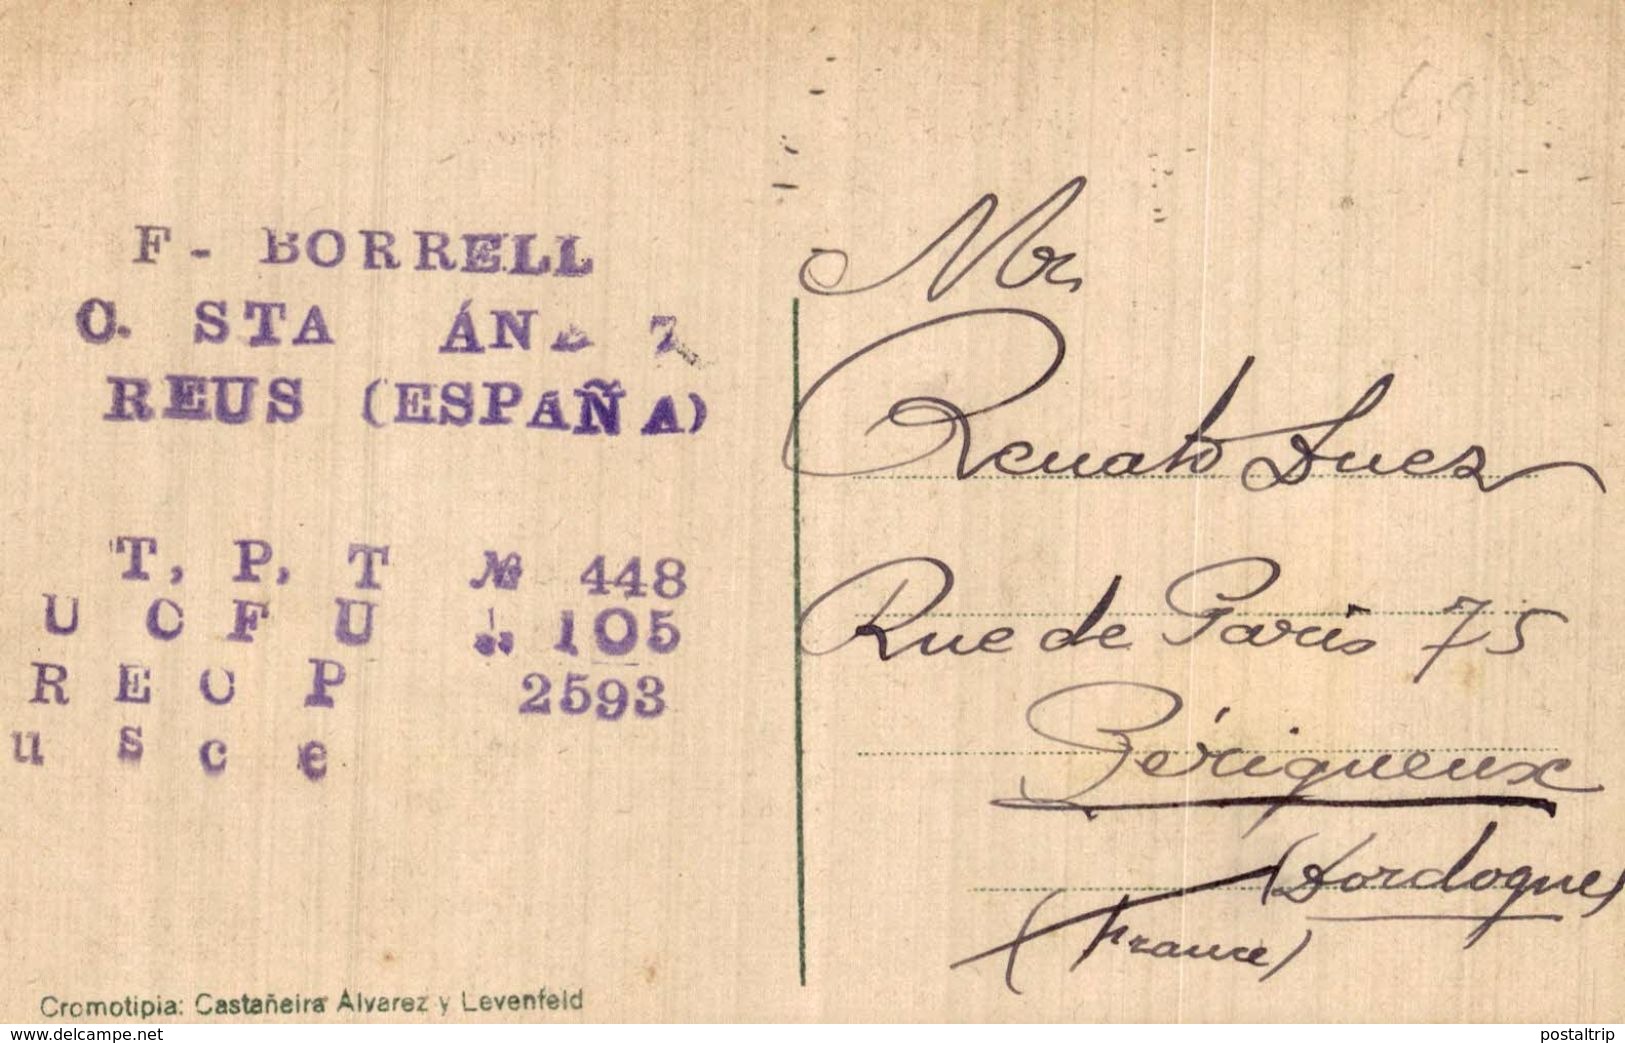 F - BORRELL
C. STA ÁNA 7
REUS (ESPAÑA)
T, P, T № 448
U C F U 105
R E C P 2593
u s c e
Mr
Renato Duez
Rue de Paris 75
Périgueux
(Dordogne)
(France)
Cromotipia: Castañeira Alvarez y Levenfeld
www.delcampe.net
postaltrip